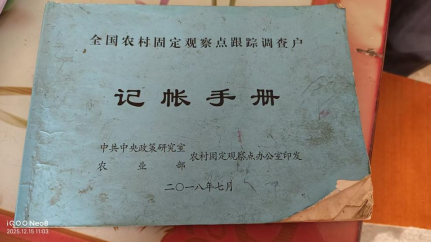 全国农村固定观察点跟踪调查户
记帐手册
中共中央政策研究室
农业部
农村固定观察点办公室印发
二〇一八年七月
iQOO Neo8
2025.12.15 11:03